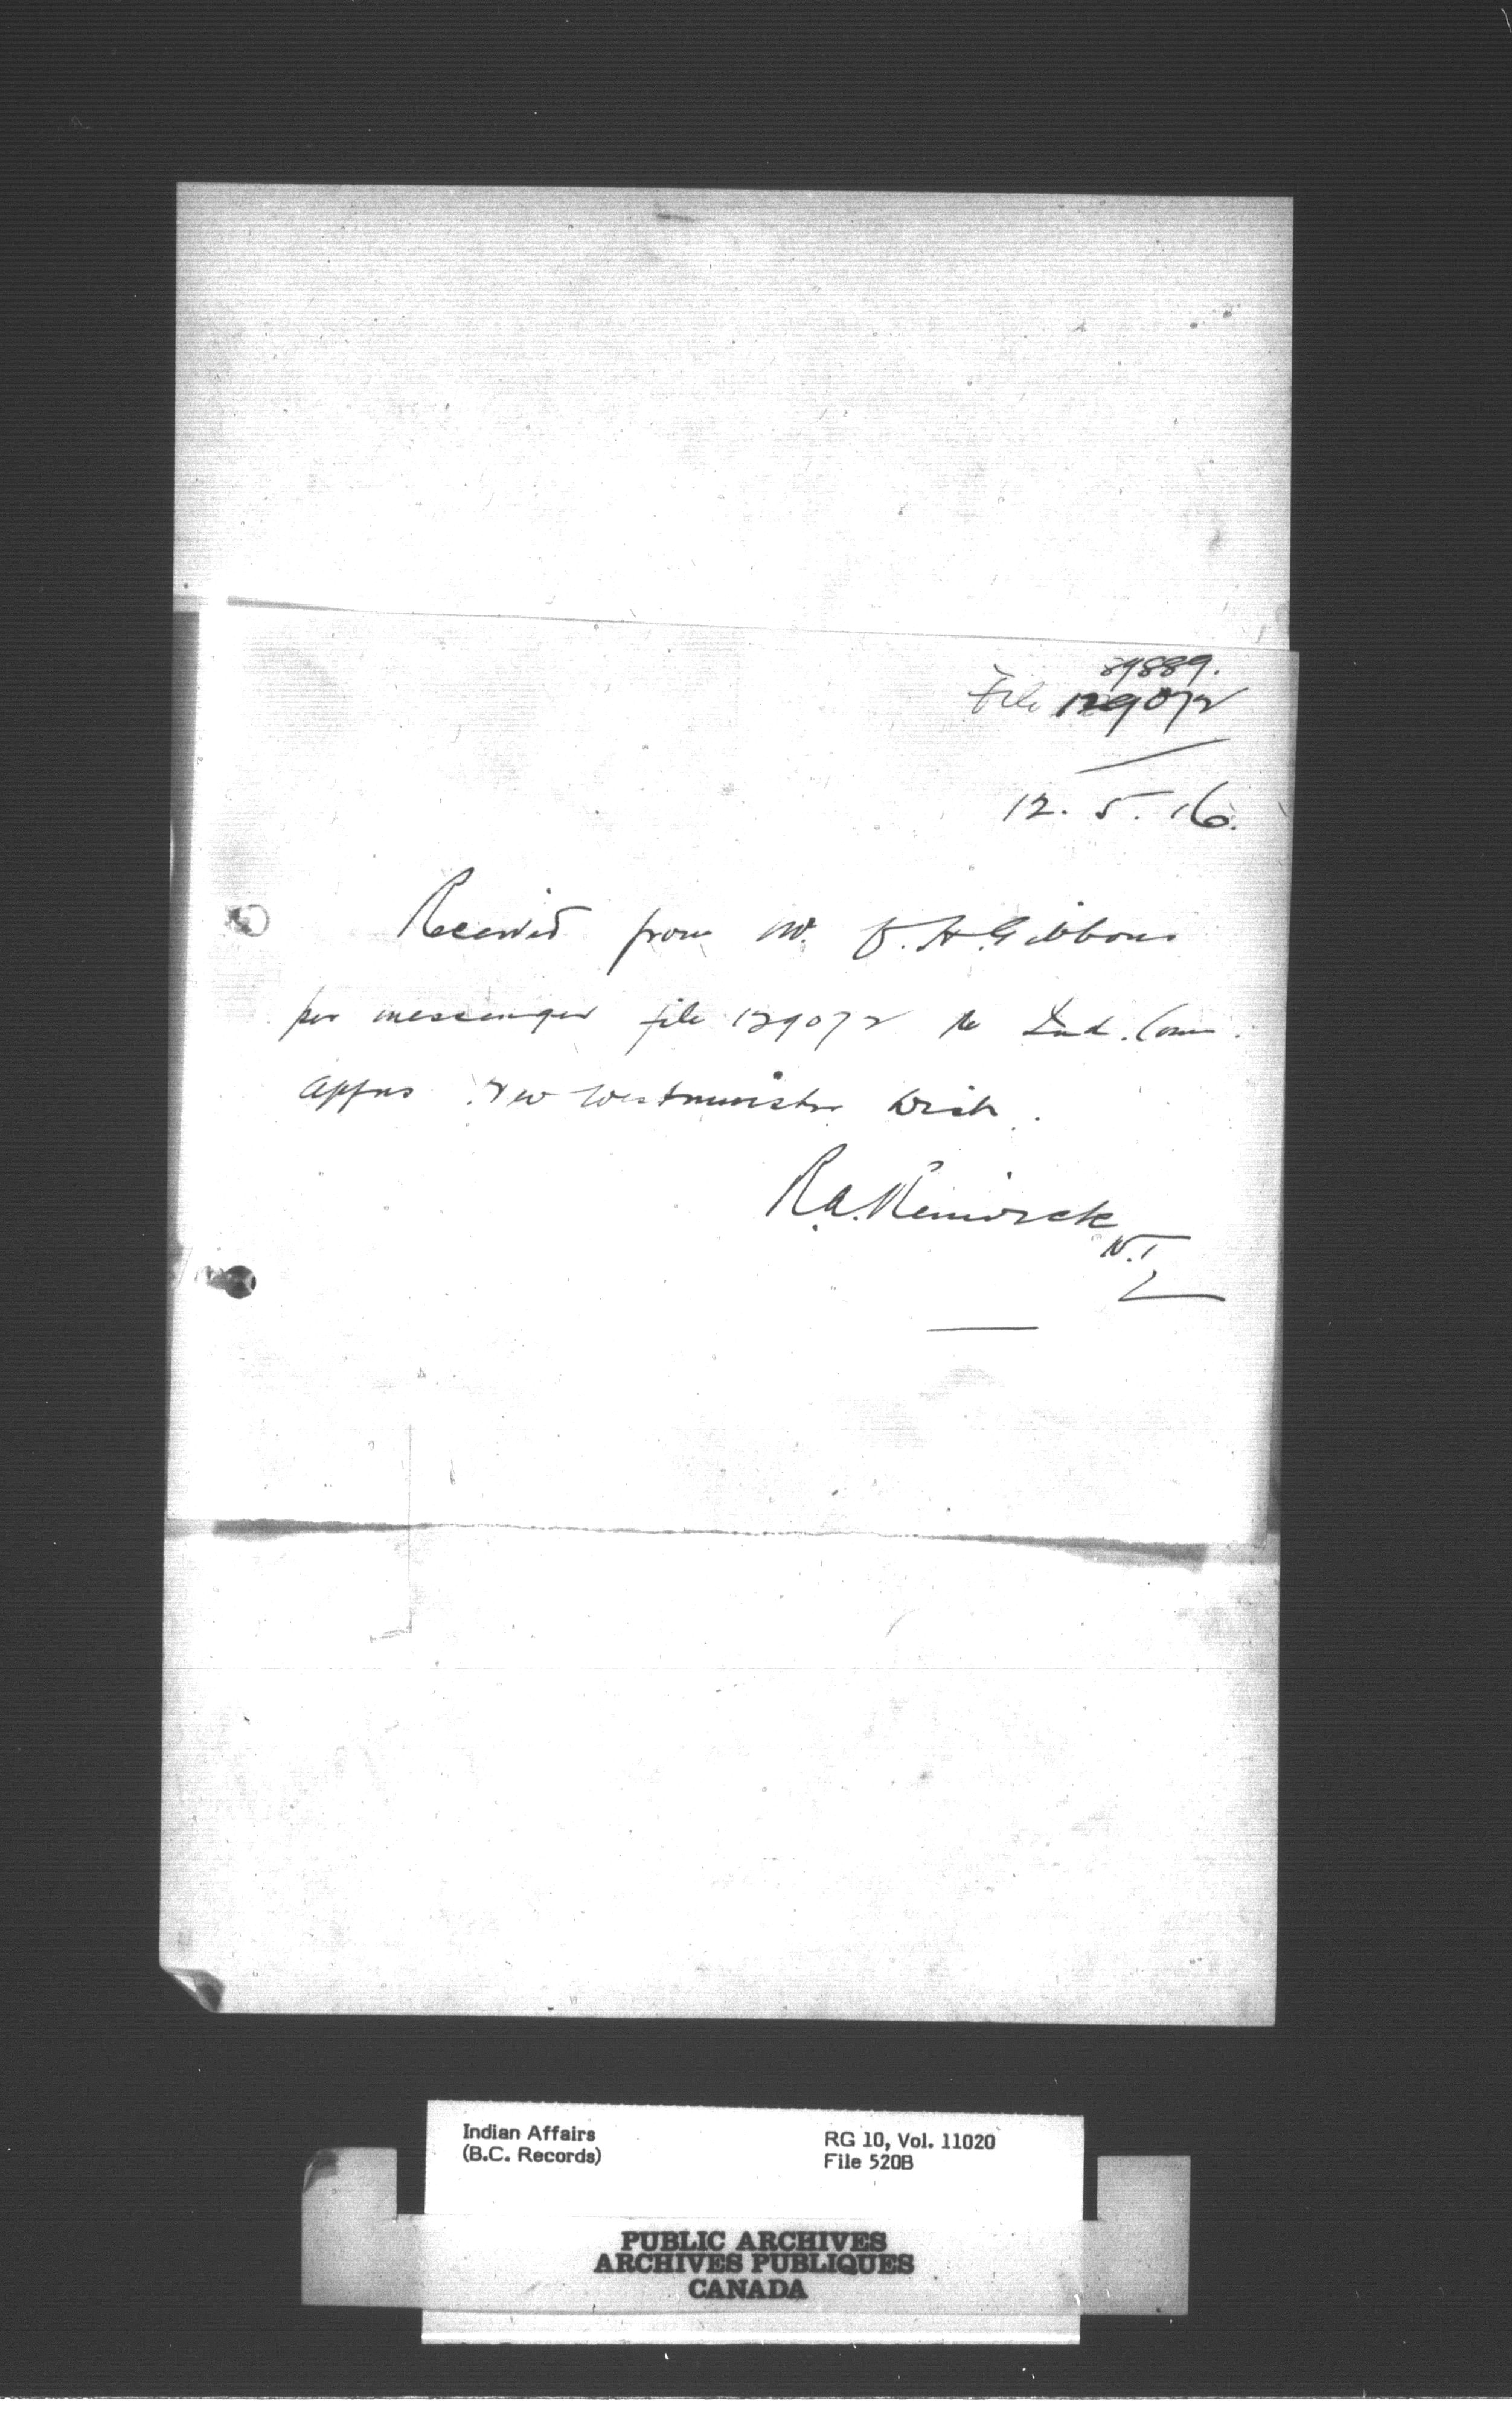 89889.
File 129072
12. 5. 16.
Received from Mr. J. H. Gibbons
per messenger file 129072 re Ind. Com.
appns New Westminster Dist.
R.A.
Indian Affairs
(B.C. Records)
RG 10, Vol. 11020
File 520B
PUBLIC ARCHIVES
ARCHIVES PUBLIQUES
CANADA